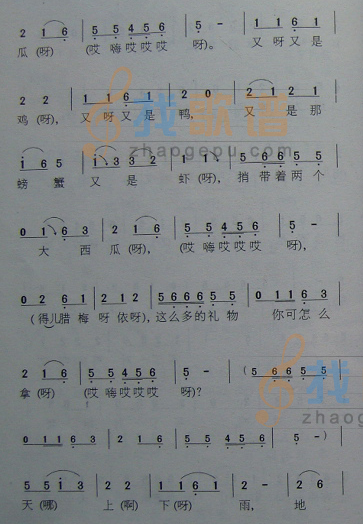 2 1 6 | 5 5 4 5 6 | 5 - | 1 1 6 1 |
瓜(呀) (哎 嗨哎哎哎 呀)。 又 呀 又 是
2 2 | 1 1 6 1 | 2 0 | 2 1 2 1 |
鸡(呀), 又 呀 又 是 鸭, 又 是 那
i 6 5 | 1 3 3 2 | 1 1 | 5 6 6 5 5 |
螃 蟹 又 是 虾(呀), 捎 带 着 两 个
0 1 6 3 | 2 1 6 | 5 5 4 5 6 | 5 - |
大 西 瓜(呀), (哎 嗨哎哎哎 呀),
0 2 6 1 | 2 1 2 | 5 6 6 6 5 5 | 0 1 1 6 3 |
(得儿腊 梅 呀 依呀), 这么多的礼 物 你可怎么
2 1 6 | 5 5 4 5 6 | 5 - | (5 6 6 5 5 |
拿(呀) (哎 嗨哎哎哎 呀)?
0 1 1 6 3 | 2 1 6 | 5 5 4 5 6 | 5 - ) |
5 5 i 3 | 2 - | 1 1 6 1 | 2 - | 2 6 |
天(哪) 上(啊) 下(呀) 雨, 地
找歌谱
zhaogepu.com
找
zhaoge